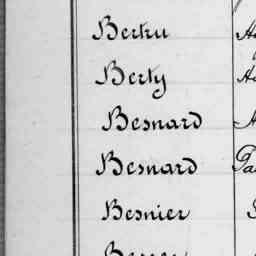 Bertru
Berty
Besnard
Besnard
Besnier